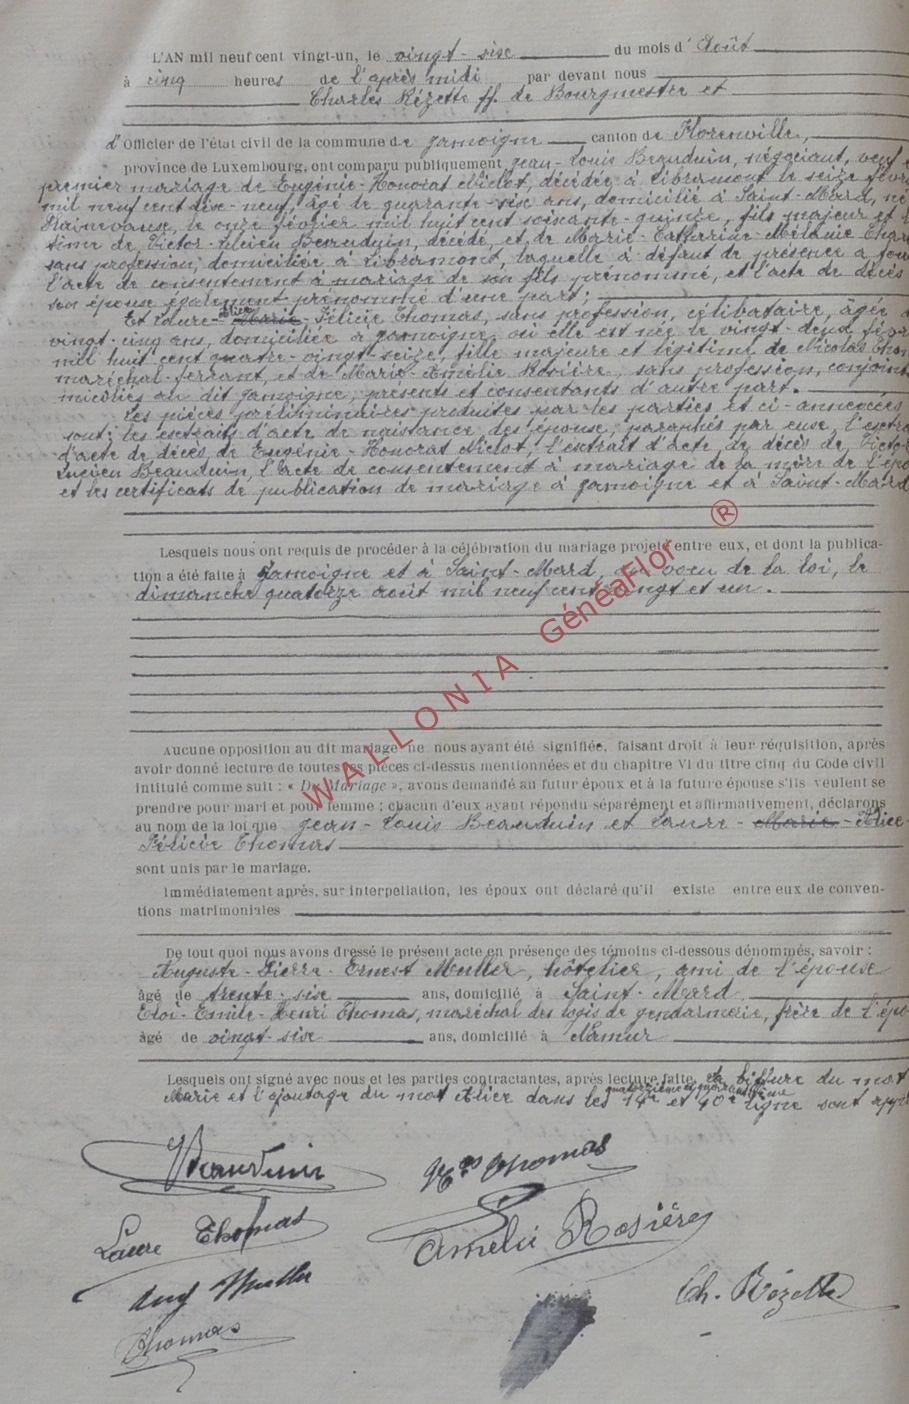 L'AN mil neuf cent vingt-un, le vingt-sixe du mois d'Août
à cinq heures de l'après midi par devant nous
Charles Rézette ff. de Bourgmestre et
d'Officier de l'état civil de la commune de Jamoigne canton de Florenville,
province de Luxembourg, ont comparu publiquement Jean-Louis Beauduin, négociant, veuf
premier mariage de Eugénie-Honorat Niclot, décédée à Libramont le seize févr
mil neuf cent dixe-neuf, âgé de quarante-sixe ans, domicilié à Saint-Mard, né
le onze février mil huit cent soixante-quinze, fils majeur et
time de Victor Beauduin, décédé, et de Marie-Catherine-Mélanie
sans profession, domiciliée à Libramont, laquelle à défaut de présence a
l'acte de consentement à mariage de son fils prénommé, et l'acte de décès
son épouse également prénommé d'une part;
Et Laure-Marie Alice-Félicie Thomas, sans profession, célibataire, âgée
vingt-cinq ans, domiciliée à Jamoigne, où elle est née le vingt-deux févr
mil huit cent quatre-vingt-seize, fille majeure et légitime de Nicolas Tho
maréchal-ferrant, et de Marie-Amélie Rosière, sans profession, conjoints
miciliés au dit Jamoigne, présents et consentants d'autre part.
Les pièces préliminaires produites par les parties et ci-annexées
sont: les extraits d'acte de naissance des épouse, paraphés par eux, l'extra
d'acte de décès de Eugénie-Honorat Niclot, l'extrait d'acte de décès de Victor
Lucien Beauduin, l'acte de consentement à mariage de la mère de l'épo
et les certificats de publication de mariage à Jamoigne et à Saint-Mard
Lesquels nous ont requis de procéder à la célébration du mariage projeté entre eux, et dont la publica-
tion a été faite à Jamoigne et à Saint-Mard, au voeu de la loi, le
dimanche quatorze août mil neuf cent vingt et un.
WALLONIA GéneaFlor ®
Aucune opposition au dit mariage ne nous ayant été signifiée, faisant droit à leur réquisition, après
avoir donné lecture de toutes les pièces ci-dessus mentionnées et du chapitre VI du titre cinq du Code civil
intitulé comme suit : « Du Mariage », avons demandé au futur époux et à la future épouse s'ils veulent se
prendre pour mari et pour femme ; chacun d'eux ayant répondu séparément et affirmativement, déclarons
au nom de la loi que Jean-Louis Beauduin et Laure-Marie-Alice-
Félicie Thomas
sont unis par le mariage.
Immédiatement après, sur interpellation, les époux ont déclaré qu'il existe entre eux de conven-
tions matrimoniales
De tout quoi nous avons dressé le présent acte en présence des témoins ci-dessous dénommés, savoir :
Auguste-Pierre-Ernest Muller, hôtelier, ami de l'épouse
âgé de trente-sixe ans, domicilié à Saint-Mard
Eloi-Emile-Henri Thomas, maréchal des logis de gendarmerie, frère de l'épo
âgé de vingt-sixe ans, domicilié à Namur
Lesquels ont signé avec nous et les parties contractantes, après lecture faite, la biffure du mot
quatorzième et quarantième
Marie et l'ajoutage du mot Alice dans les 14e et 40e ligne sont
Beauduin
Thomas
Laure Thomas
Amélie Rosière
Aug Muller
Ch. Rézette
Thomas